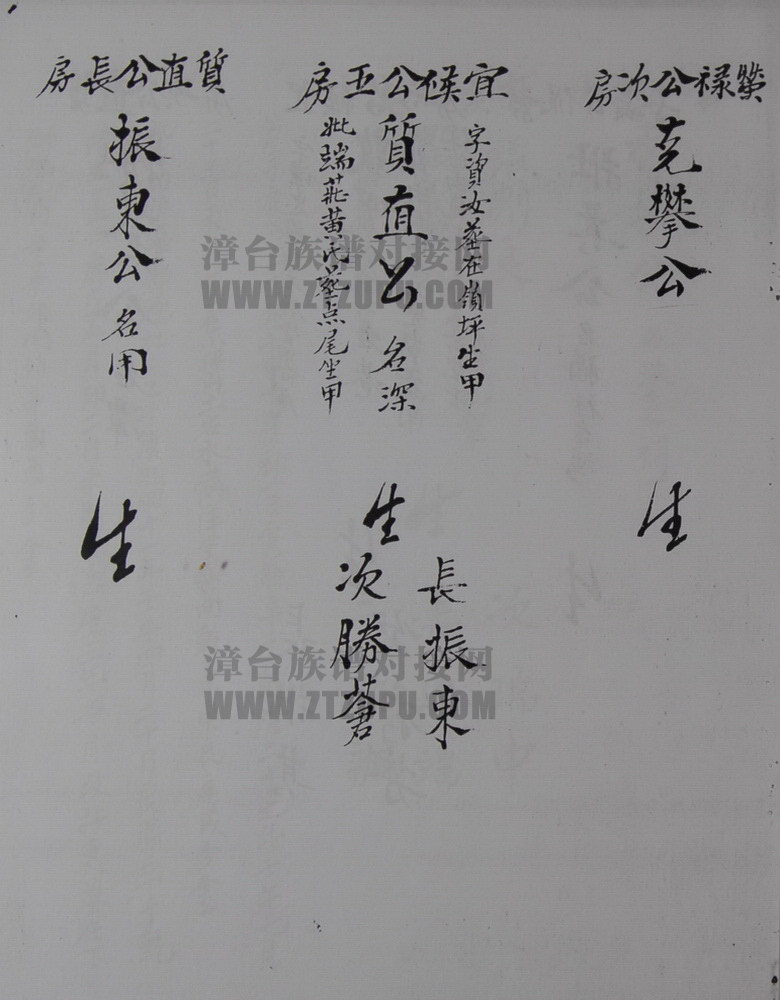 榮禄公次房
克攀公
生
宜候公五房
字資汝墓在嶺坪坐甲
質直公名深
妣瑞莊黃氏墓点尾坐甲
生
長振東
次勝蒼
質直公長房
振東公名用
生
漳台族谱对接网
WWW.ZTZUPU.COM
漳台族谱对接网
WWW.ZTZUPU.COM